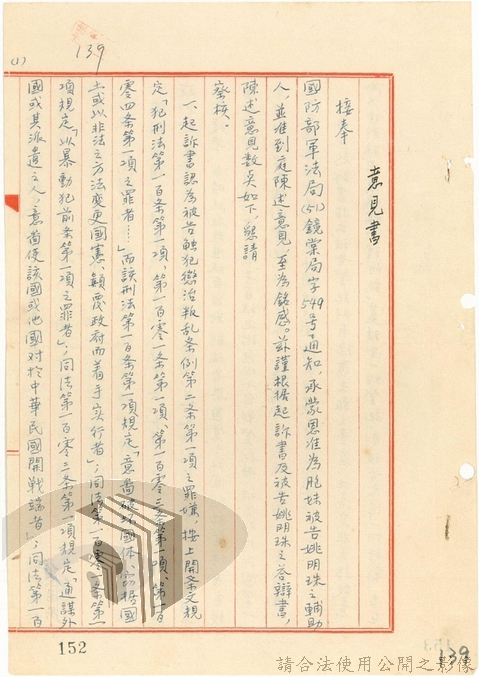 139
(1)
意見書
接奉
國防部軍法局(51)鏡棠局字549号通知，承蒙恩准為胞妹被告姚明珠之輔助
人，並准到庭陳述意見，至為銘感。茲謹根据起訴書及被告姚明珠之答辯書，
陳述意見数点如下，懇請
察核。
一、起訴書認為被告觸犯懲治叛乱条例第二条第一項之罪嫌，按上開条文規
定「犯刑法第一百条第一項、第一百零一条第一項、第一百零三条第一項、第一百
零四条第一項之罪者……」而該刑法第一百条第一項規定「意啚破坏國体、窃据國
土或以非法之方法变更國憲、顛覆政府而着手实行者」；同法第一百零一条第一
項規定「以暴動犯前条第一項之罪者」；同法第一百零三条第一項規定「通謀外
國或其派遣之人，意啚使該國或他國对於中華民國開戰端者」；同法第一百
152
153
139
請合法使用公開之影像